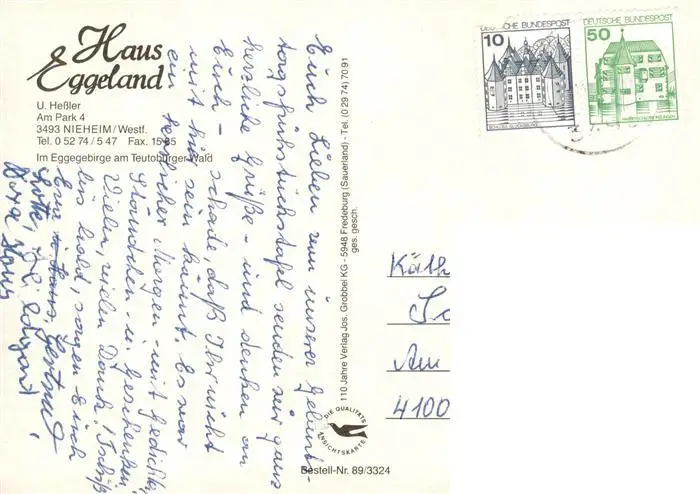 Haus
Eggeland
U. Heßler
Am Park 4
3493 NIEHEIM/Westf.
Tel. 0 52 74 / 5 47 Fax. 15 85
Im Eggegebirge am Teutoburger Wald
Euch Lieben von unserer Geburts-
tagsfrühstückstafel senden wir ganz
herzliche Grüße - und denken an
Euch - schade, daß Ihr nicht
mit hier sein könnt. Es war
ein festlicher Morgen - mit Gedichten,
Ständchen - u. Geschenken,
Vielen, vielen Dank! Tschüß
bis bald, sagen Euch
Eure Gertrud
Lotte,
Hans
110 Jahre Verlag Jos. Grobbel KG - 5948 Fredeburg (Sauerland) - Tel. (0 29 74) 70 91
ges. gesch.
DIE QUALITÄTS
ANSICHTSKARTE
Bestell-Nr. 89/3324
DEUTSCHE BUNDESPOST
10
SCHLOSS GLÜCKSBURG
DEUTSCHE BUNDESPOST
50
WASSERSCHLOSS INZLINGEN
Käth
Am
4100